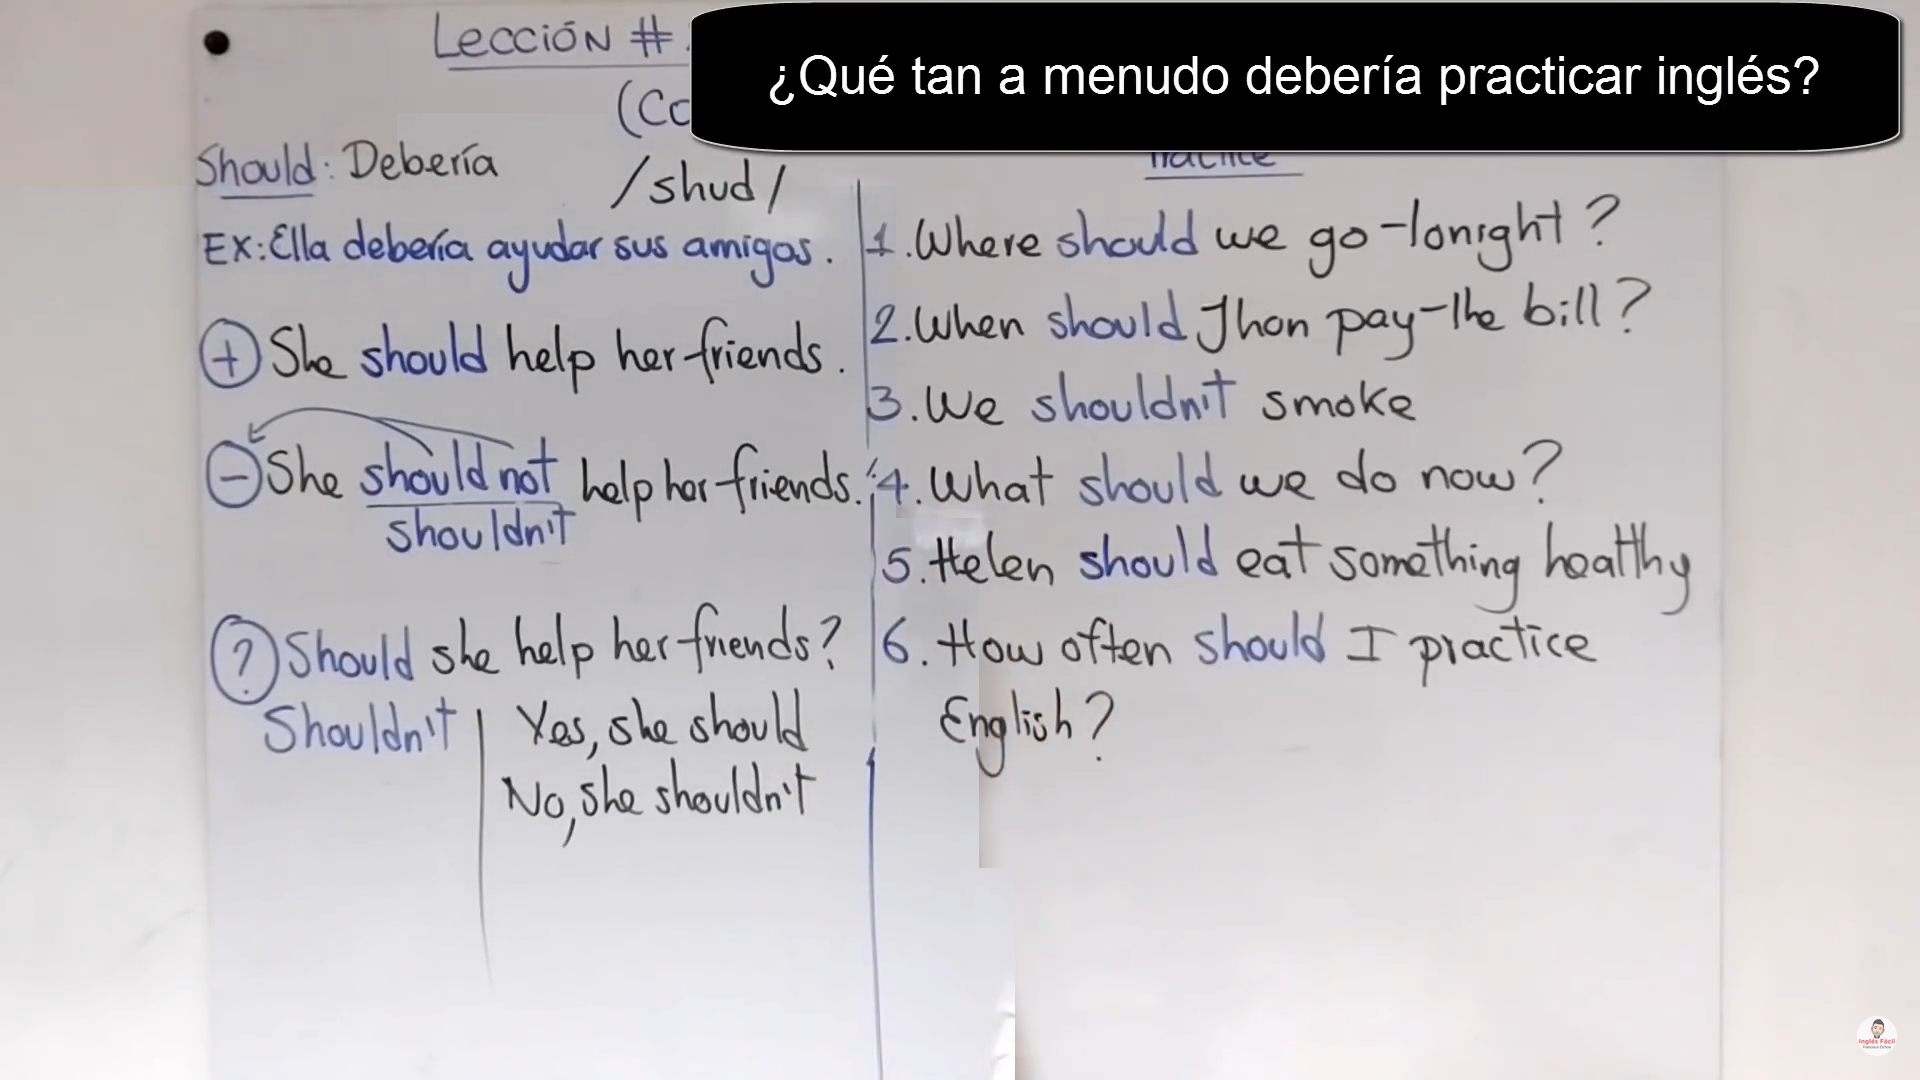 Lección #
¿Qué tan a menudo debería practicar inglés?
(Co
Should: Debería
/shud/
EX: Ella debería ayudar sus amigos.
+ She should help her friends.
- She should not help her friends.
shouldn't
? Should she help her friends?
Shouldn't
Yes, she should
No, she shouldn't
Practice
1. Where should we go tonight?
2. When should Jhon pay the bill?
3. We shouldn't smoke
4. What should we do now?
5. Helen should eat something healthy
6. How often should I practice
English?
Inglés Fácil